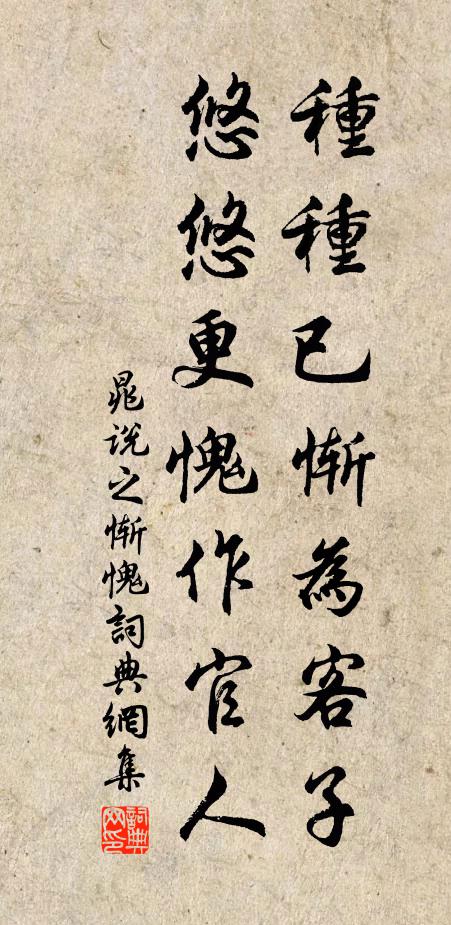 種種已慚為客子
悠悠更愧作官人
晁說之慚愧詞典網集
詞典網印